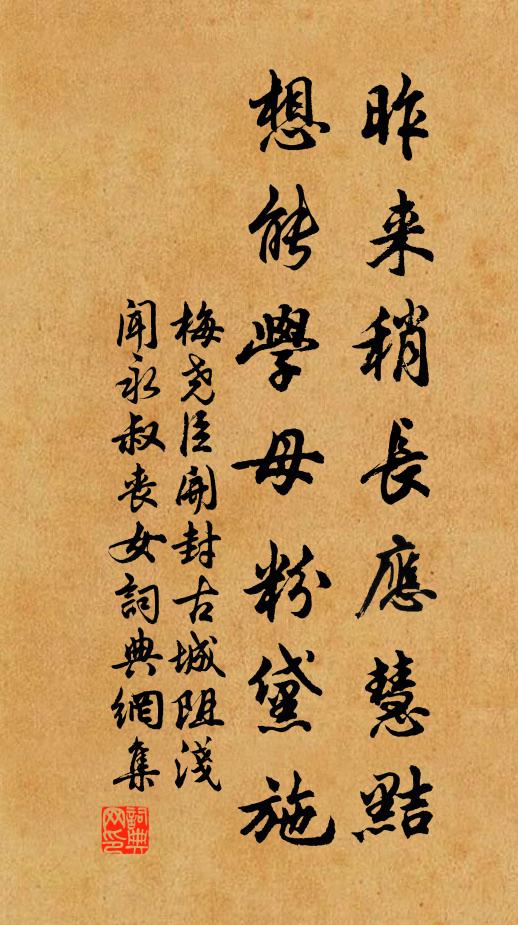 昨来稍長應慧黠
想能學母粉黛施
梅堯臣開封古城阻淺
聞永叔喪女詞典網集
詞典网印